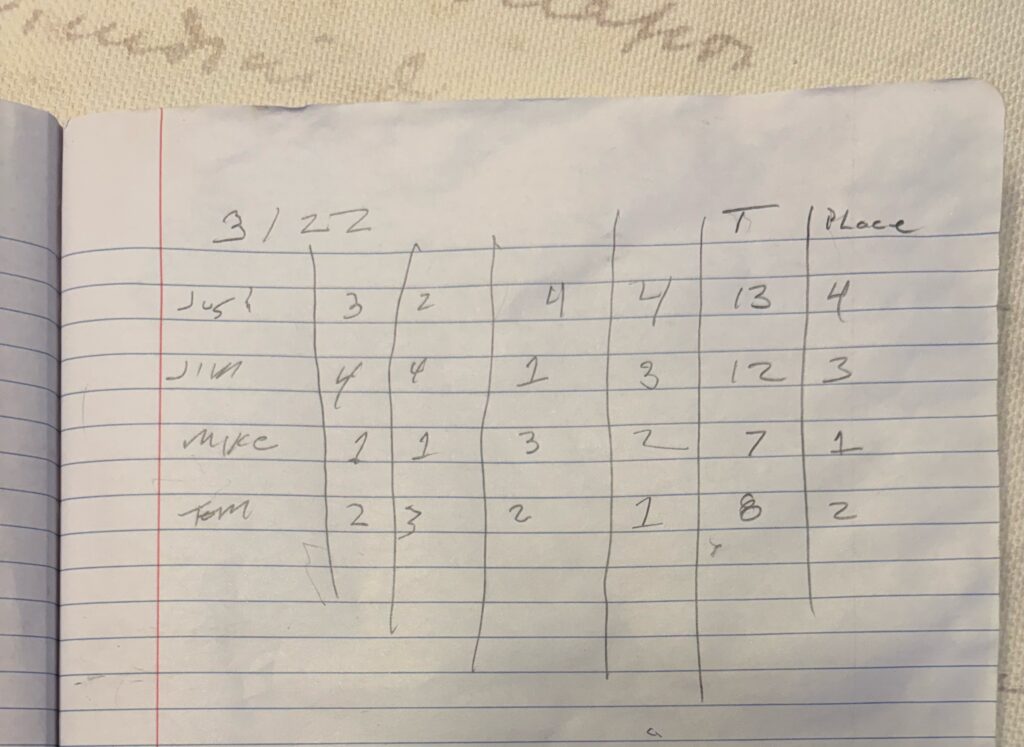 3/22 T Place
Josh 3 2 4 4 13 4
Jim 4 4 1 3 12 3
Mike 1 1 3 2 7 1
Tom 2 3 2 1 8 2